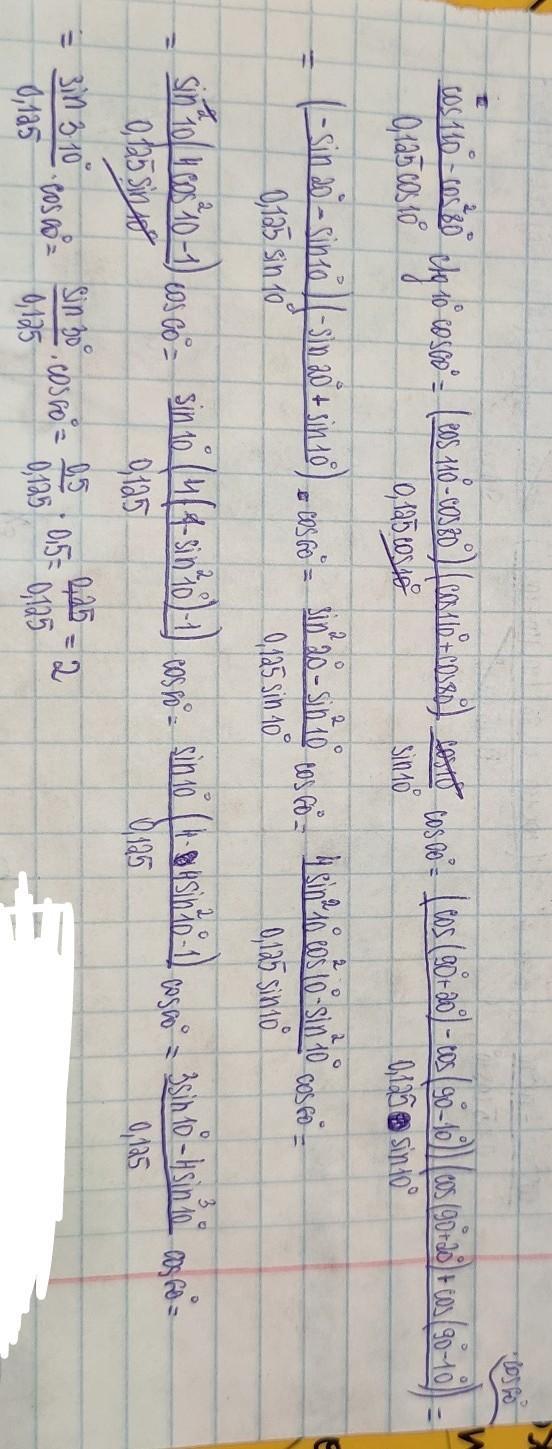 = (cos²110° - cos²80°)/(0,125 cos10°) ctg 10° cos60° = ((cos110° - cos80°)(cos110° + cos80°))/(0,125 cos10°) · cos10°/sin10° cos60° = ((cos(90°+20°) - cos(90°-10°))(cos(90°+20°) + cos(90°-10°)))/(0,125 sin10°) · cos60° =
= ((-sin20° - sin10°)(-sin20° + sin10°))/(0,125 sin10°) · cos60° = (sin²20° - sin²10°)/(0,125 sin10°) cos60° = (4sin²10° cos²10° - sin²10°)/(0,125 sin10°) cos60° =
= (sin²10(4cos²10 - 1))/(0,125 sin10°) cos60° = (sin10°(4(1 - sin²10°) - 1))/(0,125) cos60° = (sin10(4 - 4sin²10° - 1))/(0,125) cos60° = (3sin10° - 4sin³10°)/(0,125) cos60° =
= (sin3·10°)/(0,125) · cos60° = (sin30°)/(0,125) · cos60° = 0,5/0,125 · 0,5 = 0,25/0,125 = 2